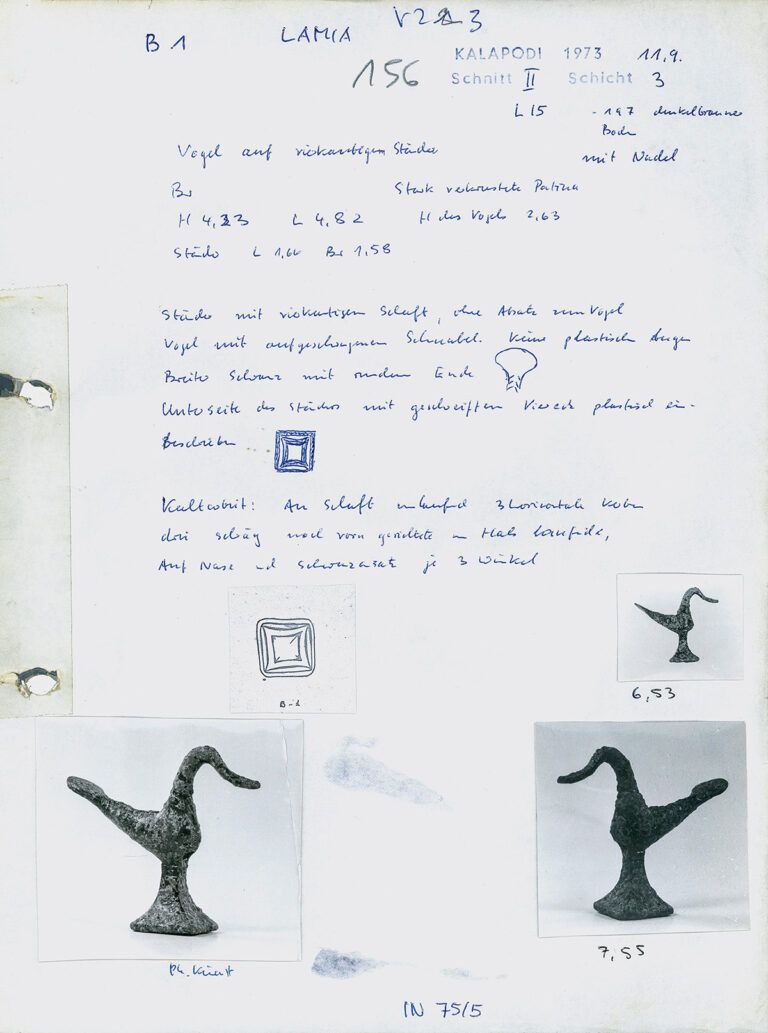 B 1 LAMIA V223
156
KALAPODI 1973 11.9.
Schnitt II Schicht 3
L 15 - 197 dunkelbrauner
Boden
Vogel auf vierkantigem Ständer
mit Nadel
Br Stark verkrustete Patina
H 4,23 L 4,82 H des Vogels 2,63
Ständer L 1,66 Br 1,58
Ständer mit vierkantigem Schaft, ohne Absatz zum Vogel
Vogel mit aufgeschwungenem Schnabel. Keine plastischen Augen
Breiter Schwanz mit rundem Ende
Unterseite des Ständers mit geschweiftem Viereck plastisch ein-
beschrieben
An Schaft umlaufend 3 horizontale
drei schräg nach vorn gerichtete um Hals laufende,
Auf Nase und Schwanzansatz je 3 Winkel
B-1
6,53
7,55
IN 75/5